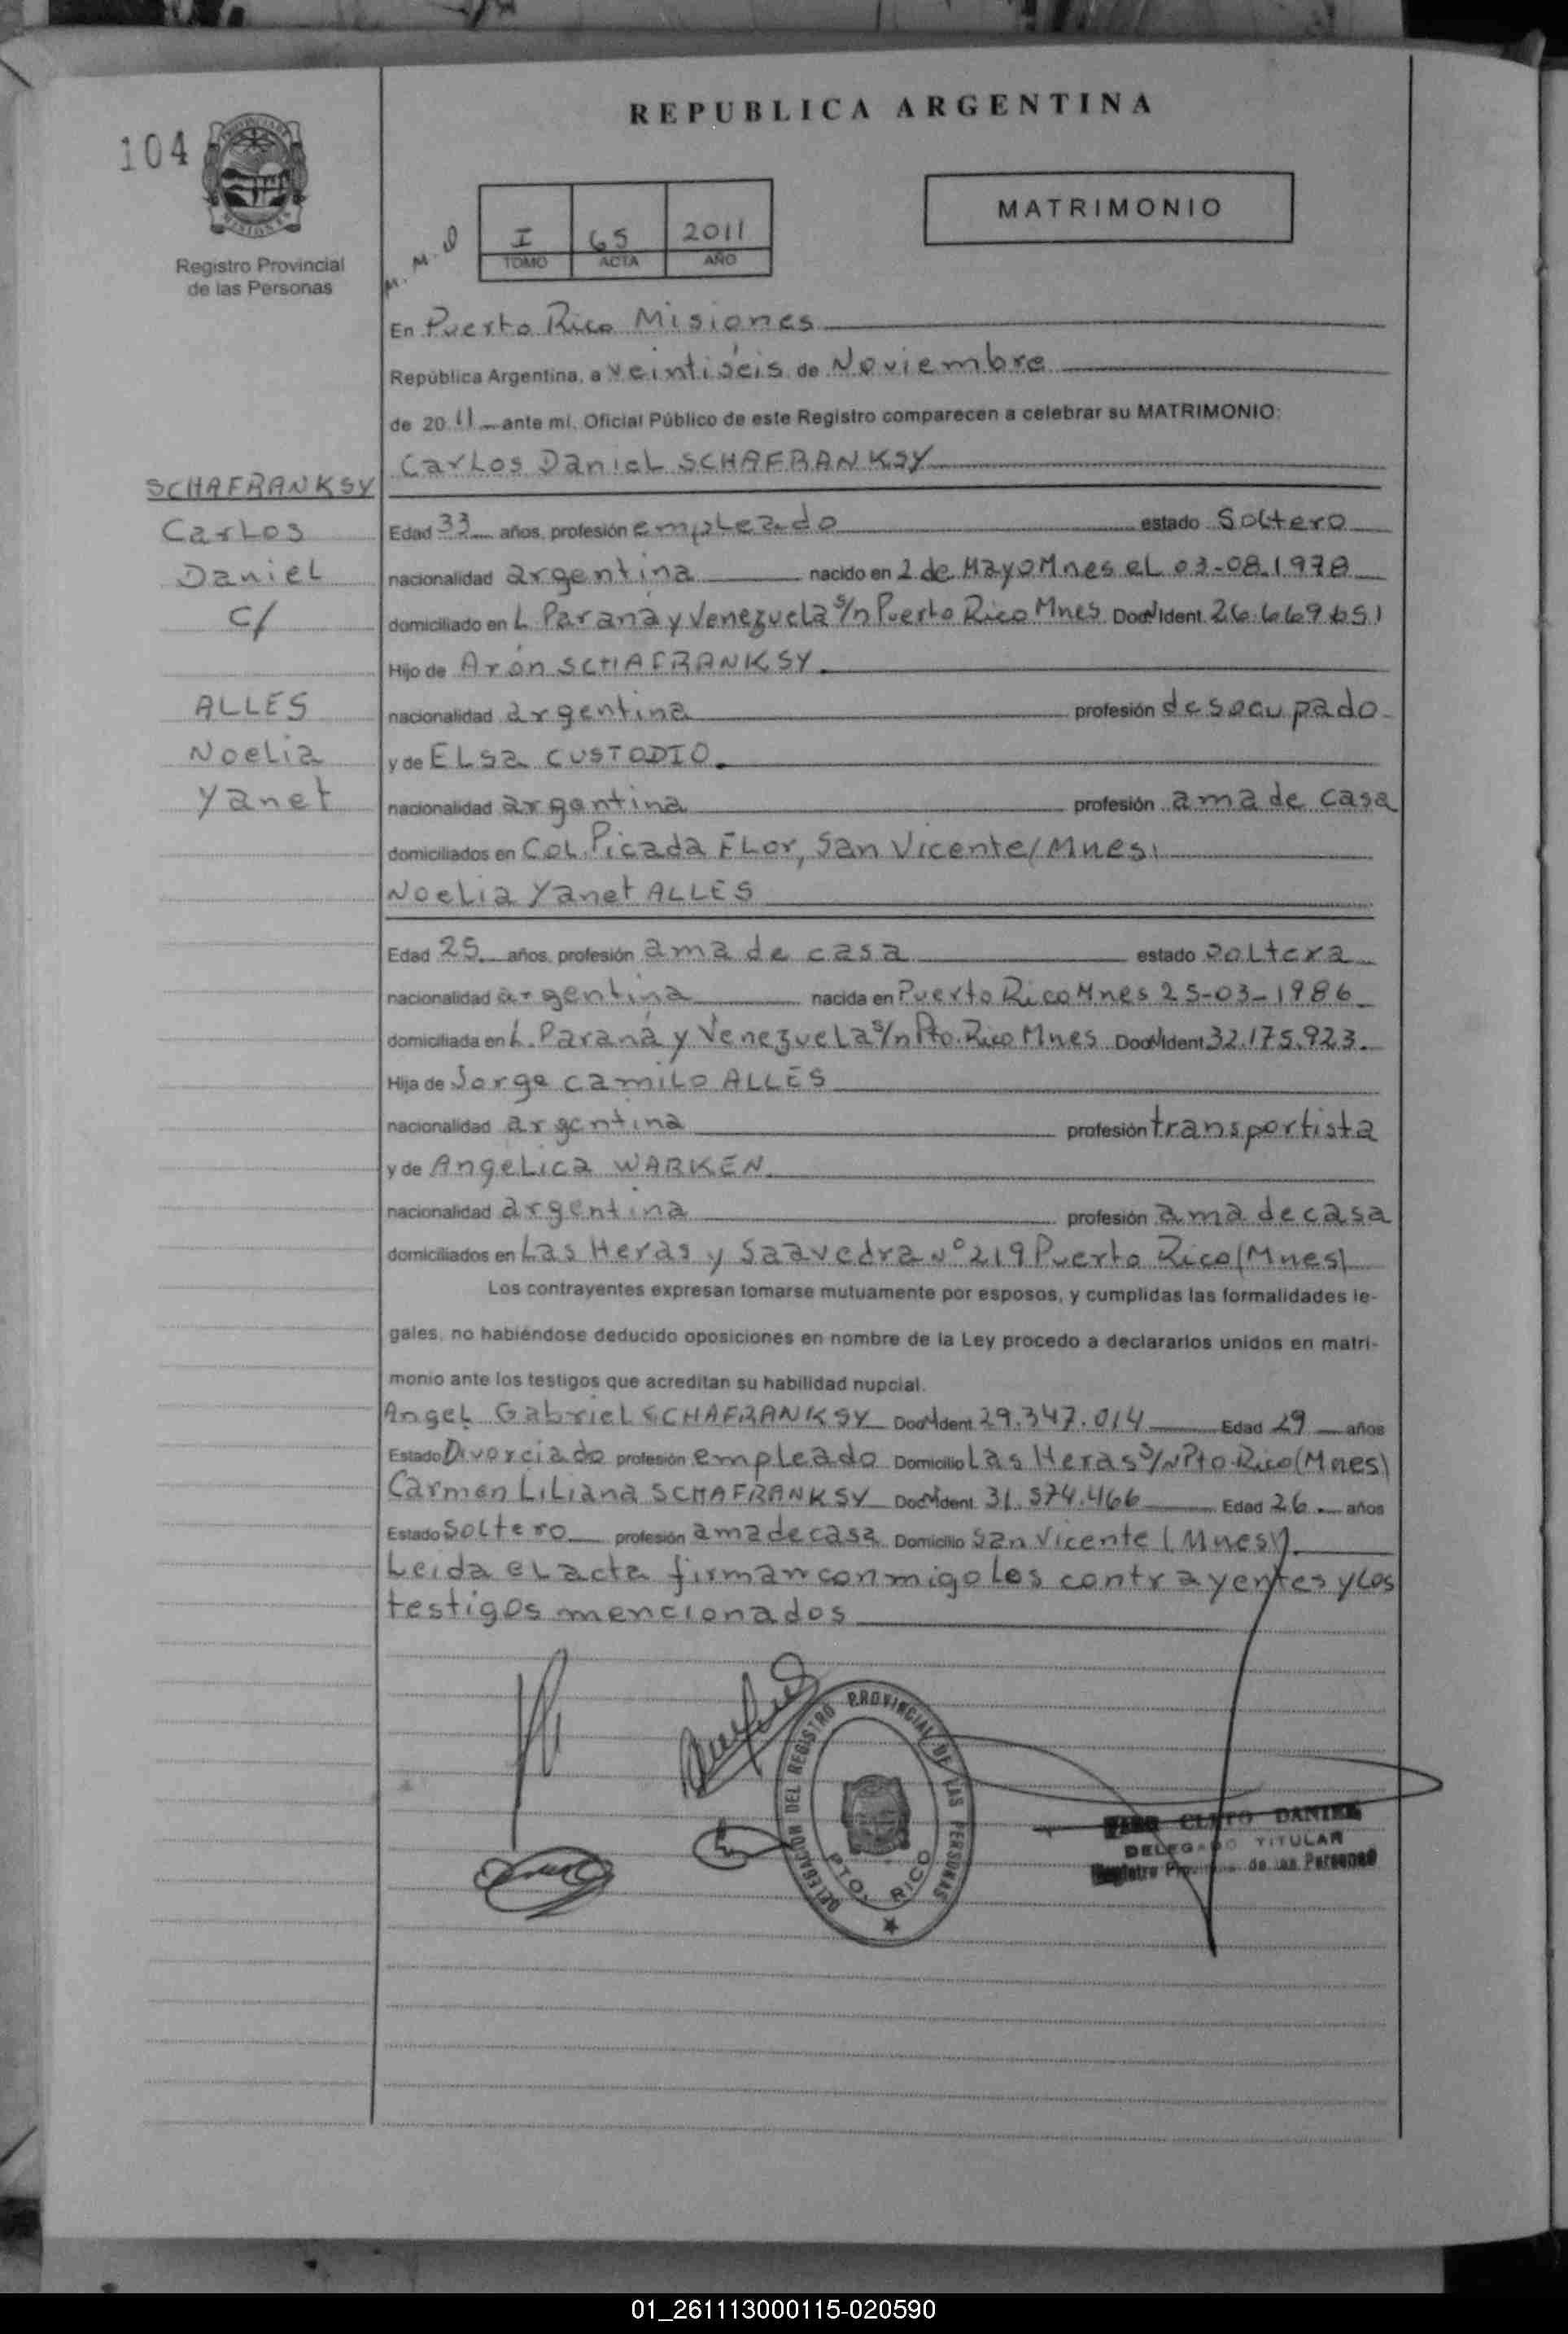 REPUBLICA ARGENTINA
104
PROVINCIA DE
MISIONES
Registro Provincial
de las Personas
M.M.D
I 65 2011
TOMO ACTA AÑO
MATRIMONIO
En Puerto Rico Misiones
República Argentina, a veintiséis de Noviembre
de 2011 ante mí, Oficial Público de este Registro comparecen a celebrar su MATRIMONIO:
Carlos Daniel SCHAFRANKSY
SCHAFRANKSY
Carlos
Daniel
c/
ALLES
Noelia
Yanet
Edad 33 años, profesión empleado estado Soltero
nacionalidad argentina nacido en 2 de Mayo Mnes el 03-08-1978
domiciliado en L. Paraná y Venezuela s/n Puerto Rico Mnes Doc. Ident. 26.669.651
Hijo de Arón SCHAFRANKSY
nacionalidad argentina profesión desocupado
y de ELSa CUSTODIO
nacionalidad argentina profesión ama de casa
domiciliados en Col. Picada Flor, San Vicente (Mnes)
Noelia Yanet ALLES
Edad 25 años, profesión ama de casa estado soltera
nacionalidad argentina nacida en Puerto Rico Mnes 25-03-1986
domiciliada en L. Paraná y Venezuela s/n Pto. Rico Mnes Doc. Ident 32.175.923.
Hija de Jorge Camilo ALLES
nacionalidad argentina profesión transportista
y de Angelica WARKEN
nacionalidad argentina profesión ama de casa
domiciliados en Las Heras y Saavedra N° 219 Puerto Rico (Mnes)
Los contrayentes expresan tomarse mutuamente por esposos, y cumplidas las formalidades le-
gales, no habiéndose deducido oposiciones en nombre de la Ley procedo a declararlos unidos en matri-
monio ante los testigos que acreditan su habilidad nupcial.
Angel Gabriel SCHAFRANKSY Doc. Ident. 29.347.014 Edad 29 años
Estado Divorciado profesión empleado Domicilio Las Heras S/N Pto. Rico (Mnes)
Carmen Liliana SCHAFRANKSY Doc. Ident. 31.574.466 Edad 26 años
Estado Soltero profesión ama de casa Domicilio San Vicente (Mnes)
Leida el acta firman conmigo los contrayentes y los
testigos mencionados
DELEGACION DEL REGISTRO PROVINCIAL DE LAS PERSONAS
PTO. RICO
CLETO DANIEL
DELEGADO TITULAR
Registro Provincial de las Personas
01_261113000115-020590